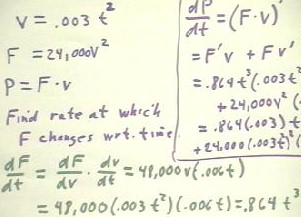 v = .003 t²
F = 24,000v²
P = F · v
Find rate at which
F changes wrt. time.
dF/dt = dF/dv · dv/dt = 48,000v(.006t)
= 48,000(.003 t²)(.006t) = .864 t³
dP/dt = (F · v)'
= F'v + Fv'
= .864 t³(.003 t²
+ 24,000v² (
= .864(.003) t
+ 24,000(.003t²)²(